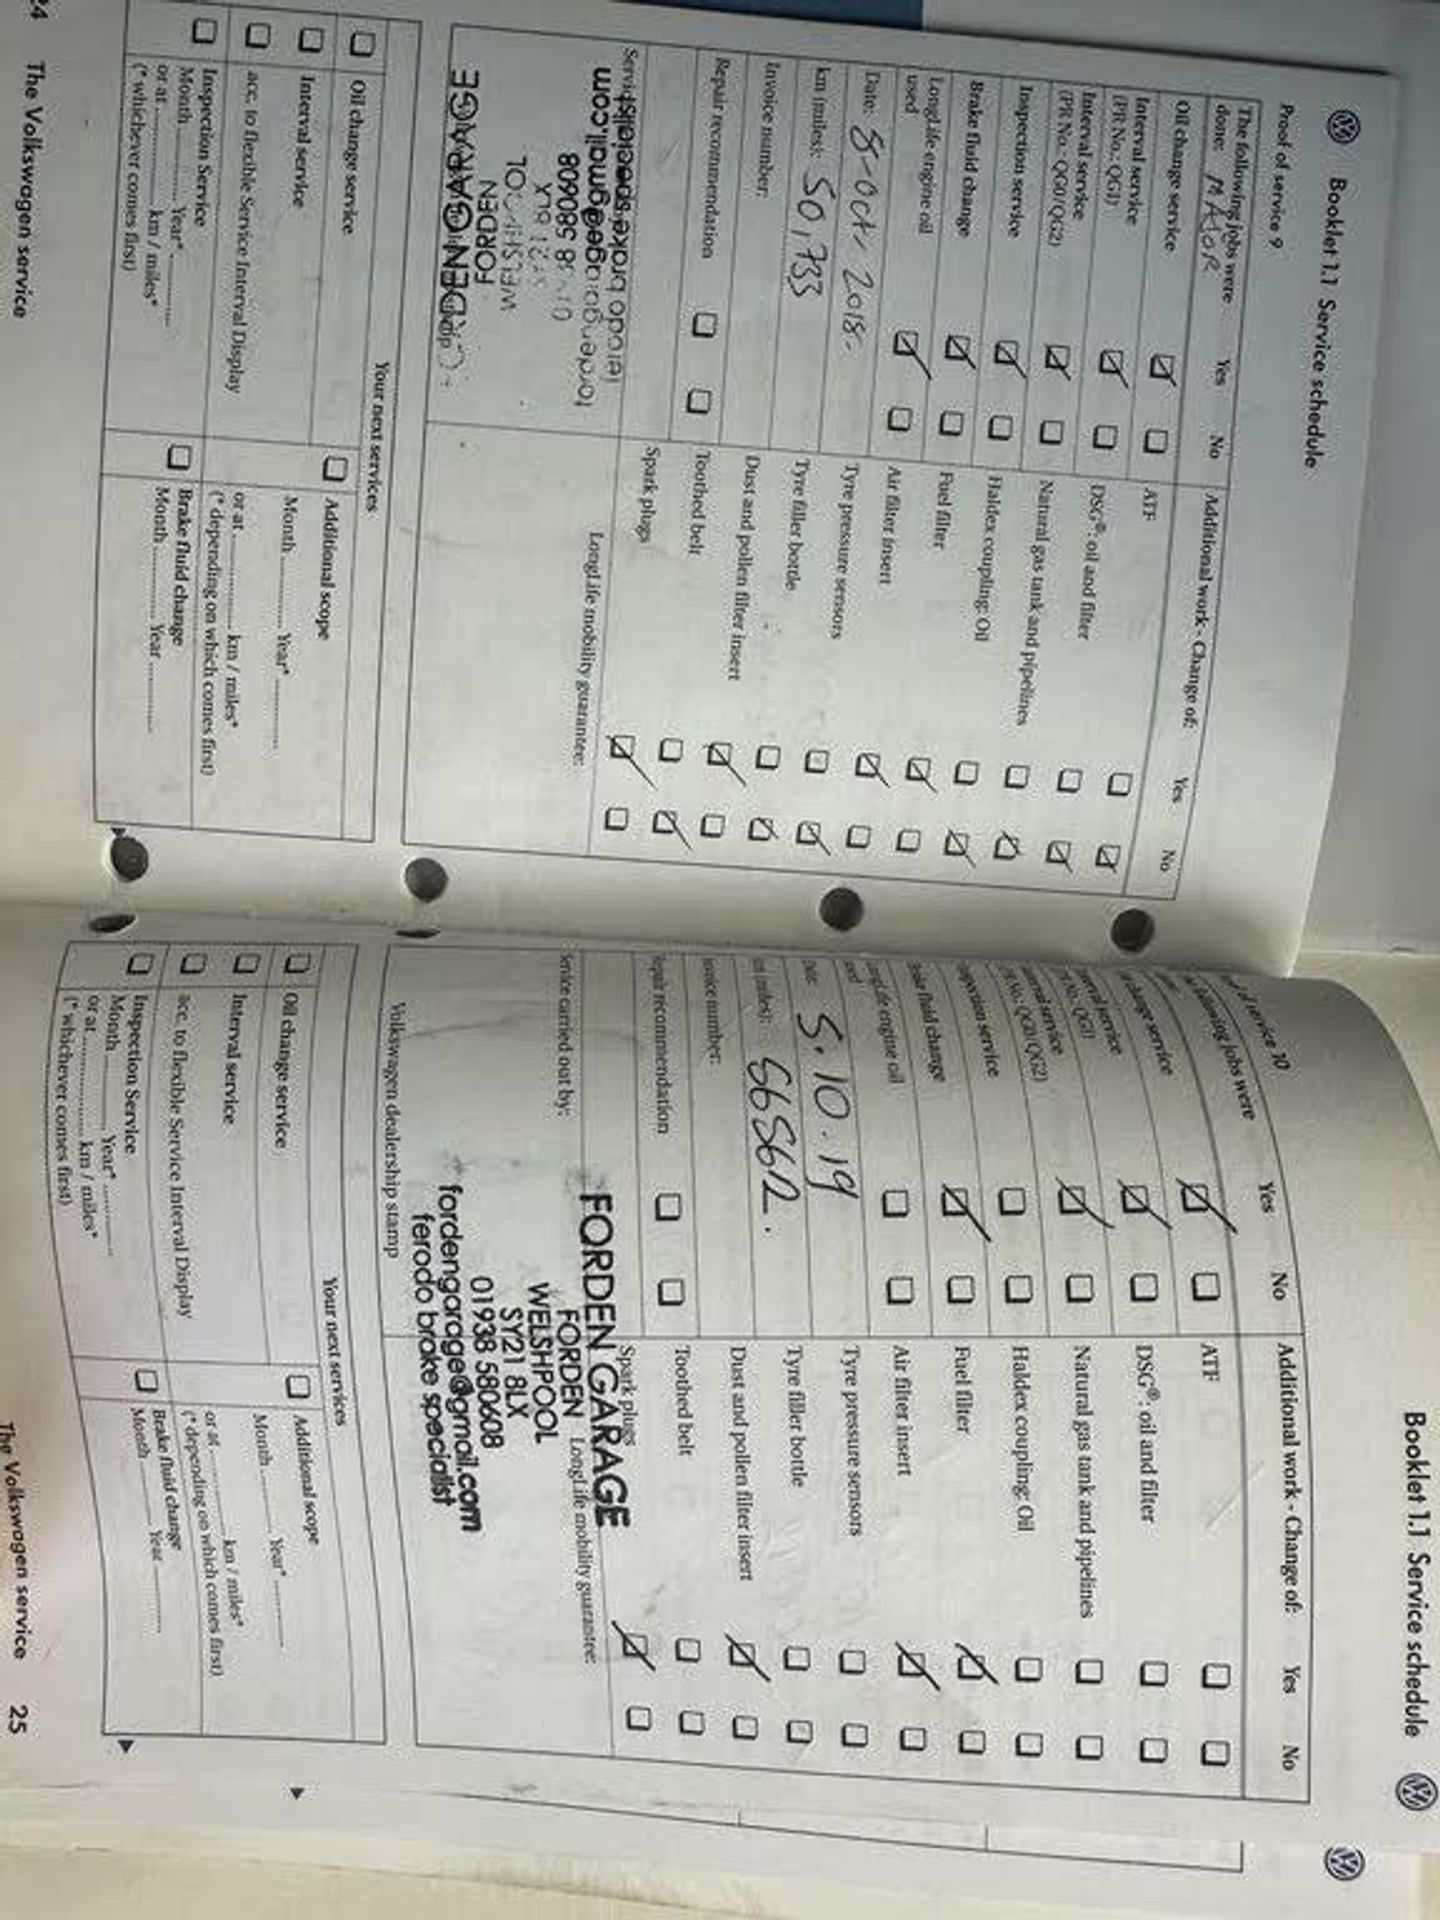 Booklet 1.1 Service schedule
Proof of service 9
The following jobs were
done: MAJOR
Yes No
Oil change service
Interval service
(PR No.: QG1)
Interval service
(PR No.: QG0/QG2)
Inspection service
Brake fluid change
LongLife engine oil
used
Date: 8-Oct, 2018.
km (miles): 50,733
Invoice number:
Repair recommendation
Additional work - Change of: Yes No
ATF
DSG®: oil and filter
Natural gas tank and pipelines
Haldex coupling: Oil
Fuel filter
Air filter insert
Tyre pressure sensors
Tyre filler bottle
Dust and pollen filter insert
Toothed belt
Spark plugs
LongLife mobility guarantee:
ferodo brake specialist
fordengarage@gmail.com
01938 580608
SY21 8LX
WELSHPOOL
FORDEN
FORDEN GARAGE
Your next services
Oil change service
Interval service
acc. to flexible Service Interval Display
Inspection Service
Month Year*
or at km / miles*
(* whichever comes first)
Additional scope
Month Year*
or at km / miles*
(* depending on which comes first)
Brake fluid change
Month Year
24 The Volkswagen service
Booklet 1.1 Service schedule
of service 10
following jobs were
Yes No
change service
service
QG1)
service
QG0/QG2)
service
fluid change
engine oil
5.10.19
56562.
number:
recommendation
Additional work - Change of: Yes No
ATF
DSG®: oil and filter
Natural gas tank and pipelines
Haldex coupling: Oil
Fuel filter
Air filter insert
Tyre pressure sensors
Tyre filler bottle
Dust and pollen filter insert
Toothed belt
Spark plugs
Service carried out by:
LongLife mobility guarantee:
FORDEN GARAGE
FORDEN
WELSHPOOL
SY21 8LX
01938 580608
fordengarage@gmail.com
ferodo brake specialist
Volkswagen dealership stamp
Your next services
Oil change service
Interval service
acc. to flexible Service Interval Display
Inspection Service
Month Year*
or at km / miles*
(* whichever comes first)
Additional scope
Month Year*
or at km / miles*
(* depending on which comes first)
Brake fluid change
Month Year
The Volkswagen service 25